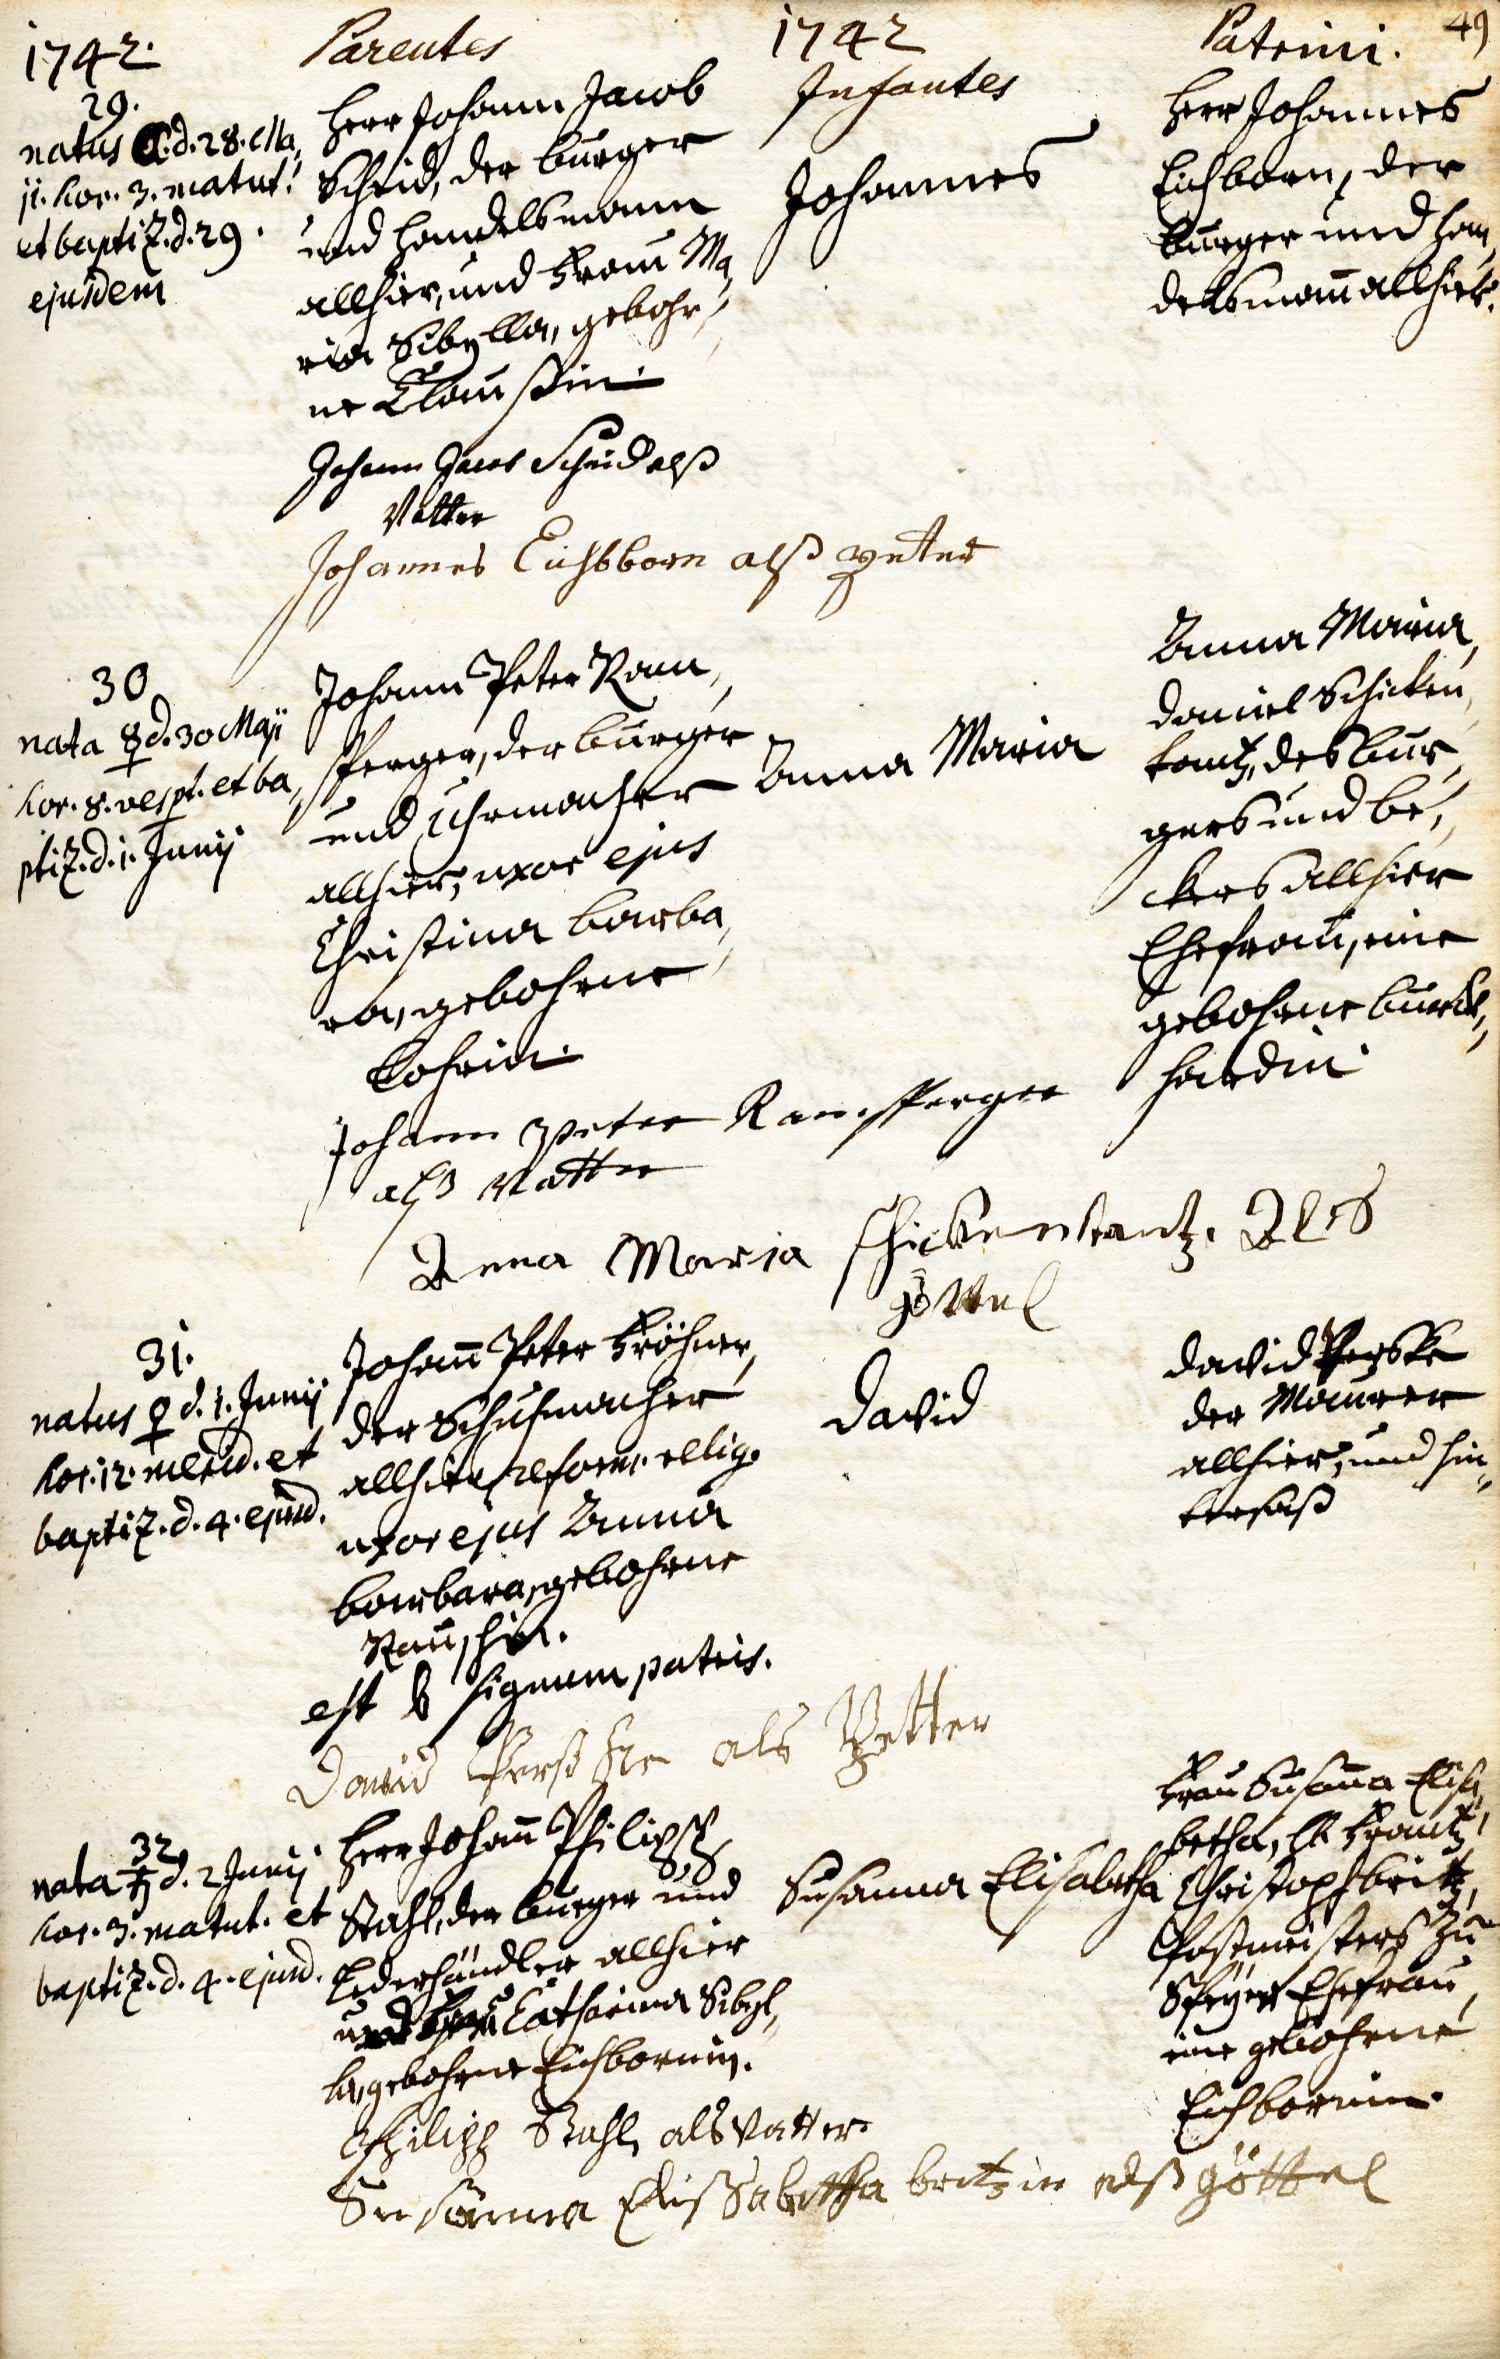 49
1742. Parentes 1742 Infantes Patrini.
29.
natus ☾. d. 28. Ma,
ji. hor. 3. matut.
et baptiz. d. 29.
ejusdem
Herr Johann Jacob
Scheid, der burger
und handelsmann
allhier, und Frau Ma,
ria Sibylla, gebohr,
ne Claussin.
Johannes
Herr Johannes
Eichborn, der
burger und han,
delsmañ allhier.
Johann Jacob Scheid alß
Vatter
Johannes Eichbborn alß petter
30
nata ☿ d. 30 Maji
hor. 8. vesp. et ba,
ptiz. d. 1. Junij
Johann Peter Ram,
sperger, der burger
und Uhrmacher
allhier, uxor ejus
Christina barba,
ra, gebohrne
Anna Maria
Anna Maria,
Daniel Schicken,
tantz, des bur,
gers und be,
ckers allhier
Ehefrau, eine
gebohrne burck,
hardin
Johann peter Ramsperger
alß Vatter
Anna Maria schickentantz. Als
göttel
31.
natus ♀ d. 1. Junij
hor. 12. merid. et
baptiz. d. 4. ejusd.
Johañ Peter Fröhner,
der Schuhmacher
allhier, reform. relig.
uxor ejus Anna
barbara, gebohrne
est signum patris.
David
David
der Maurer
allhier, und hin,
tersaß
David als Petter
32
nata ♄ d. 2 Junij
hor. 3. matut. et
baptiz. d. 4. ejusd.
Herr Johañ Philipp
Stahl, der burger und
Lederhändler allhier
und Frau Catharina Sibyl,
la, gebohrne Eichbornin.
Susanna Elisabetha
Frau Susaña Elisa,
betha, H. Frantz
Christoph britz,
Postmeisters zu
Speyer Ehefrau,
eine gebohrne
Eichbornin.
Philipp Stahl als Vatter
Susanna Elissabetha britzin alß göttel